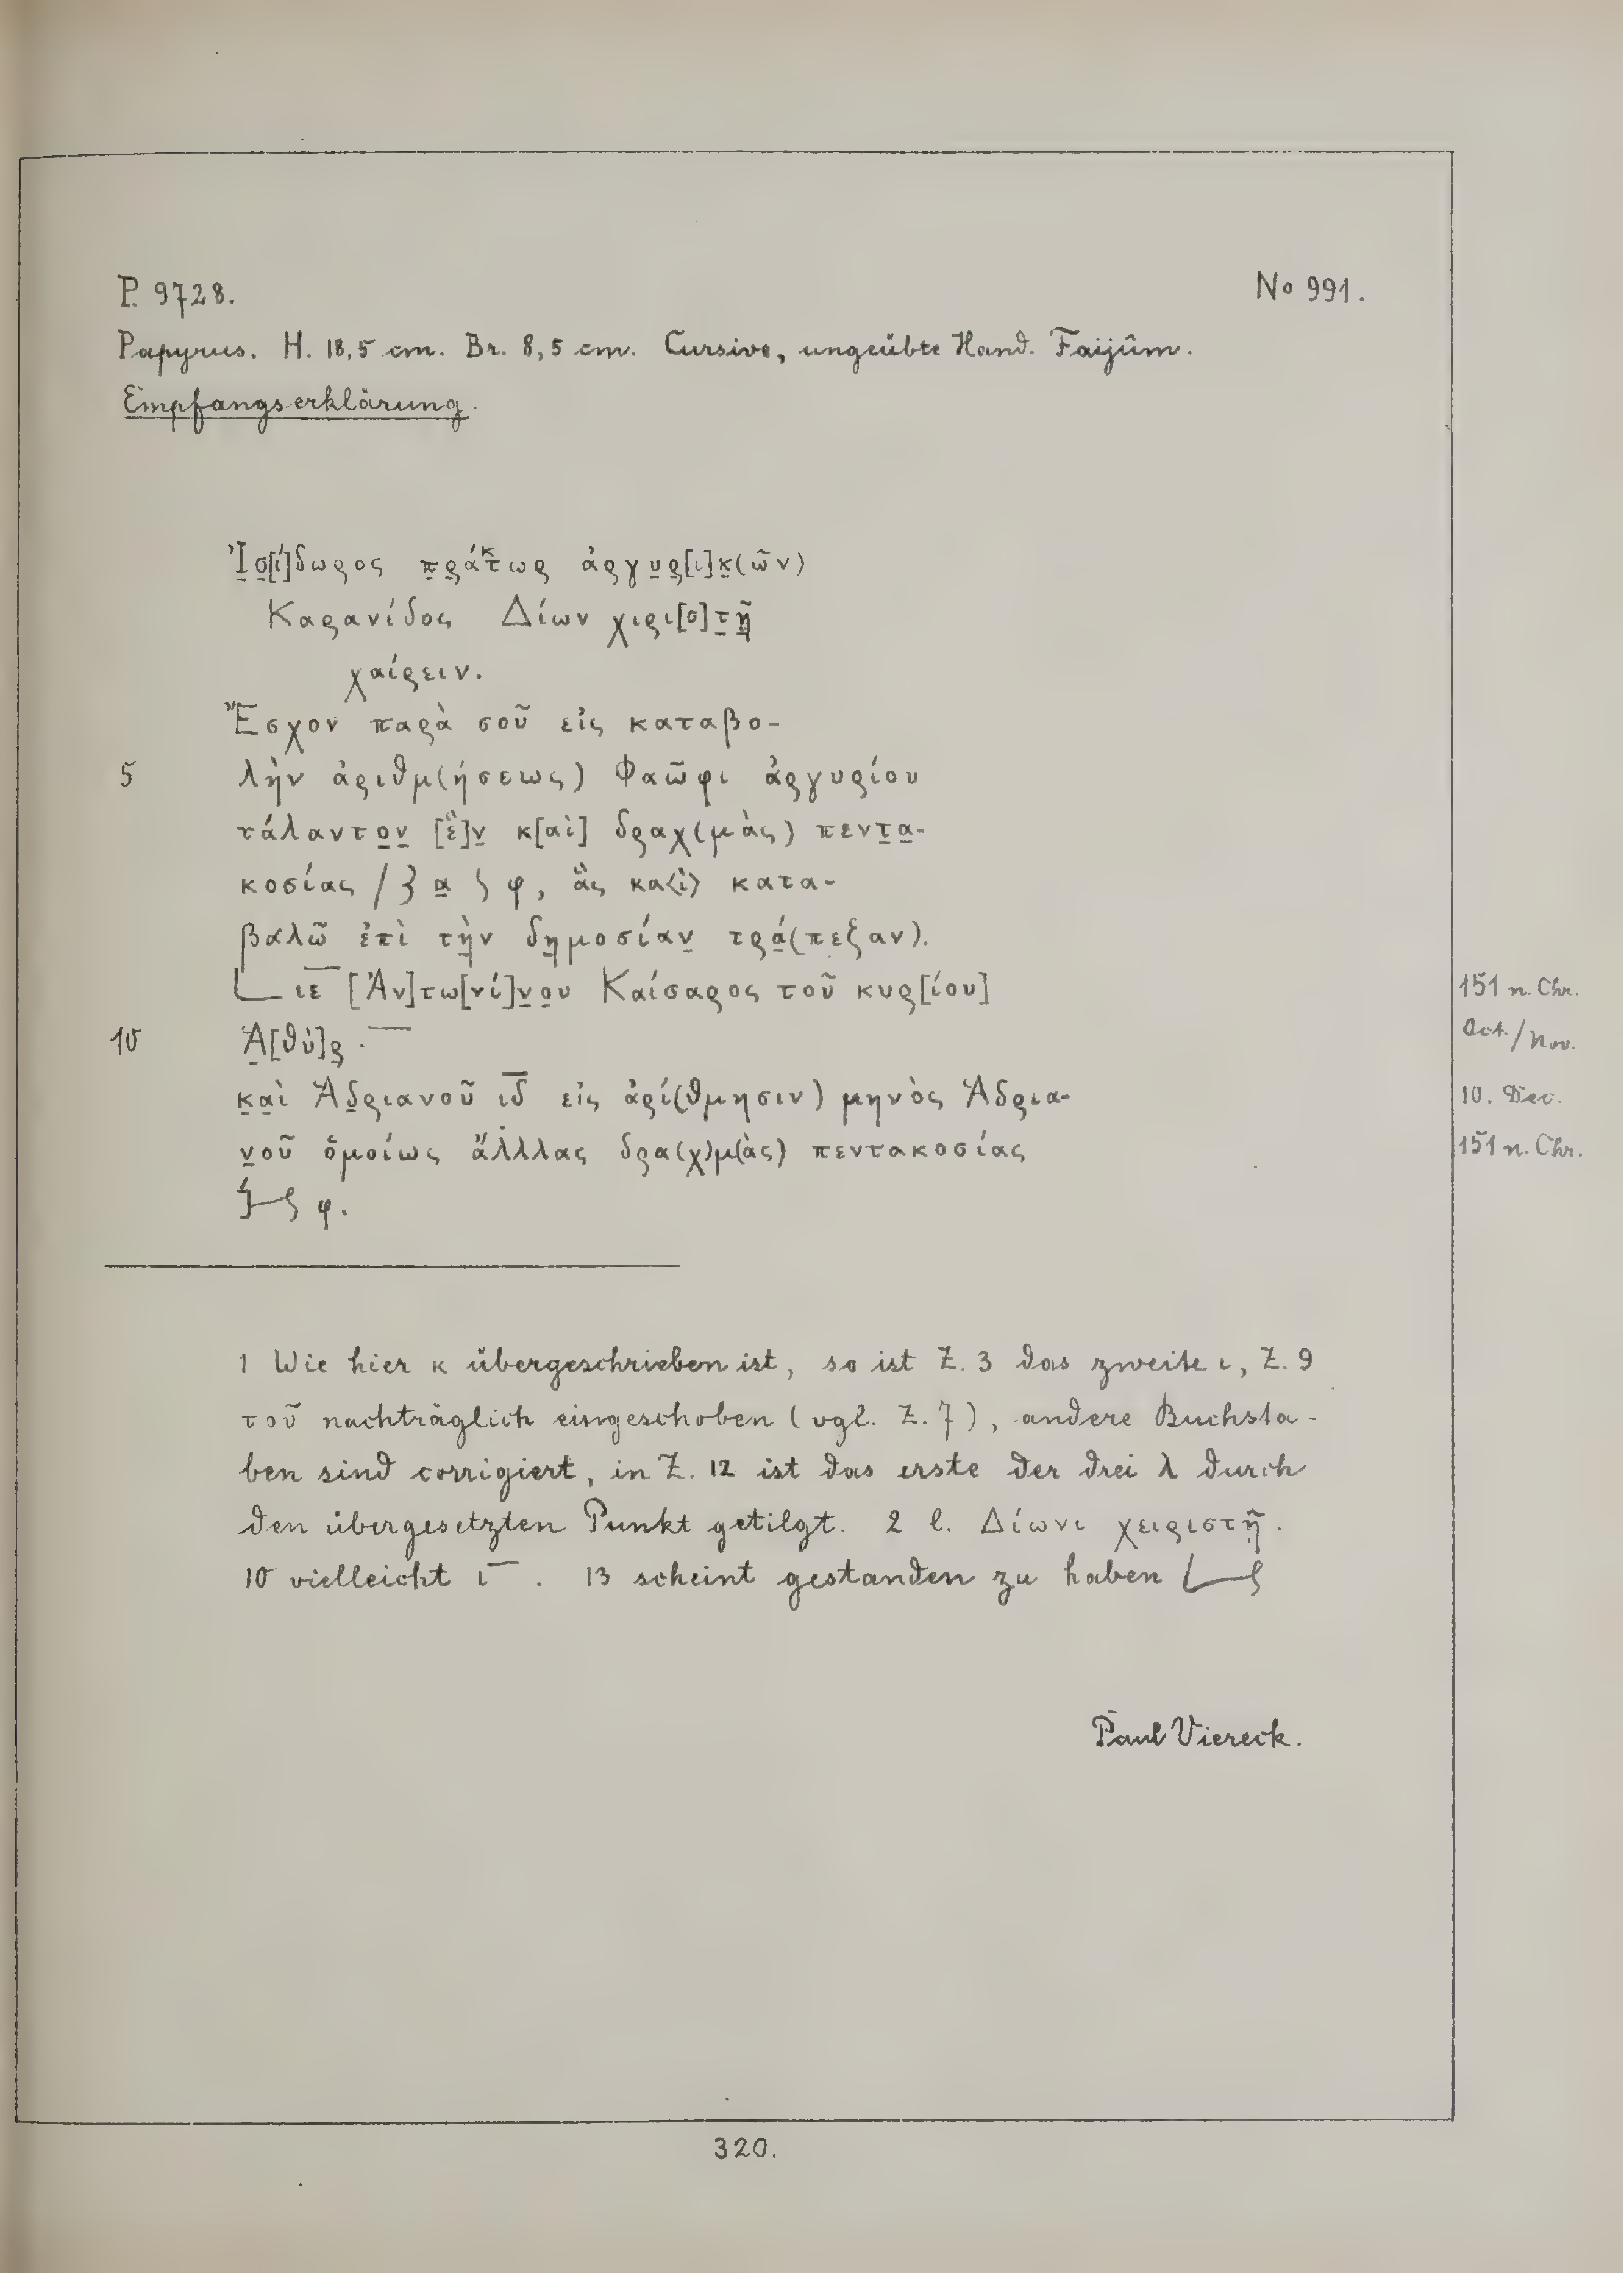 P. 9728. No 991.
Papyrus. H. 18,5 cm. Br. 8,5 cm. Cursive, ungeübte Hand. Faijûm.
Empfangserklärung.
Ἰ̣σ̣[ί]δωρος π̣ρ̣άκτωρ ἀργυ̣ρ̣[ι]κ̣(ῶν)
Καρανίδος Δίων χιρι[σ]τ̣ῇ̣
χαίρειν.
Ἔσχον παρὰ σοῦ εἰς καταβο-
5 λὴν ἀριθμ(ήσεως) Φαῶφι ἀργυρίου
τάλαντο̣ν̣ [ἓ]ν̣ κ[αὶ] δραχ(μὰς) πεντ̣α̣-
κοσίας / ϡ α̣ ʃ φ, ἃς κα⟨ὶ⟩ κατα-
βαλῶ ἐπὶ τὴ̣ν δη̣μοσίαν̣ τρά̣(πεζαν).
∟ ι̅ε̅ [Ἀν]τω[νί]ν̣ο̣υ Καίσαρος τοῦ κυρ[ίου] 151 n. Chr.
10 Ἁ̣[θὺ]ρ̣ . ̅ Oct./Nov.
κ̣α̣ὶ Ἁδ̣ριανοῦ ι̅δ̅ εἰς ἀρί(θμησιν) μηνὸς Ἁδρια- 10. Dec.
ν̣οῦ ὁμοίως ἄλ̇λλας δρα(χ)μ(ὰς) πεντακοσίας 151 n. Chr.
φ.
1 Wie hier κ übergeschrieben ist, so ist Z. 3 das zweite ι, Z. 9
τοῦ nachträglich eingeschoben (vgl. Z. 7), andere Buchsta-
ben sind corrigiert, in Z. 12 ist das erste der drei λ durch
den übergesetzten Punkt getilgt. 2 l. Δίωνι χειριστῇ.
10 vielleicht ι̅ . 13 scheint gestanden zu haben
Paul Viereck.
320.